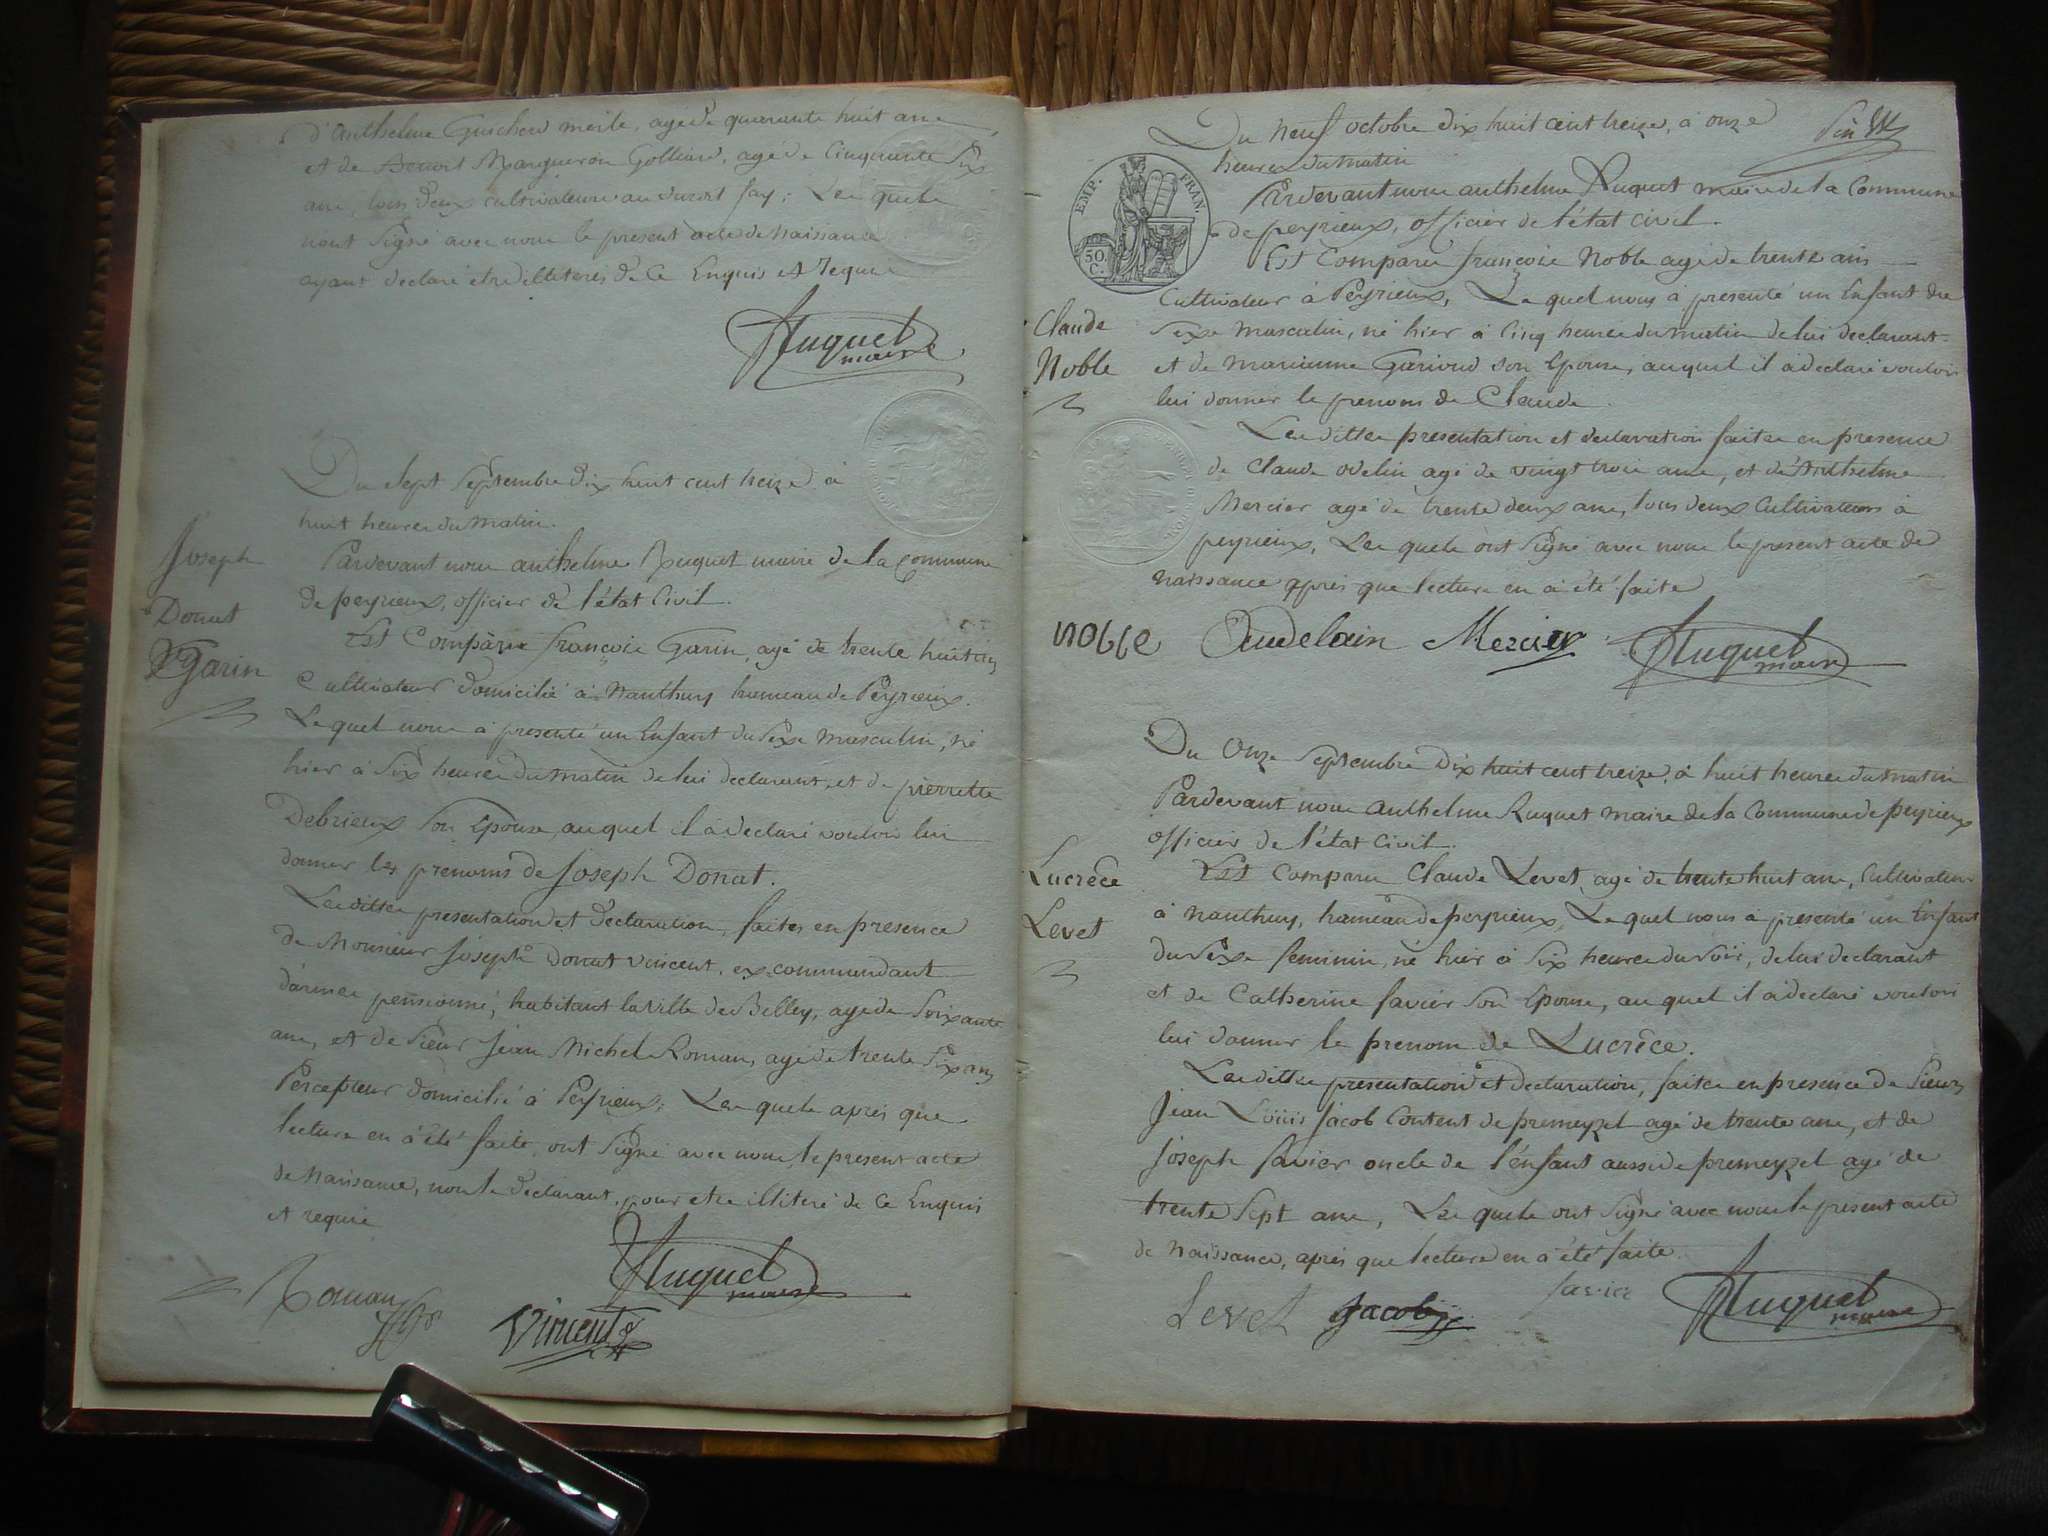 d'Anthelme Guichon merle, agé de quarante huit ans
et de Benoit Margueron Golliard, agé de Cinquante Six
ans, tous deux cultivateurs au dit fay; Les quels
nont Signé avec nous le present acte de naissance
ayant declaré etre illiteres de Ce Enquis et Requis
Huguet
maire
Joseph
Donat
Garin
Du Sept Septembre dix huit cent treize à
huit heures du matin.
Pardevant nous anthelme Huguet maire de la commune
de peyrieux, officier de l'état Civil.
Est Comparu françois Garin, agé de trente huit ans
Cultivateur domicilié à Nanthuy hameau de Peyrieux.
Le quel nous à presenté un Enfant du Sexe masculin, né
hier à Six heures du matin de lui declarant, et de pierrette
Debrieux Son Epouse, auquel il à declaré vouloir lui
donner les prenoms de Joseph Donat.
Les dittes presentation et déclaration, faites en presence
de Monsieur Joseph donat vincent, ex commandant
d'armes pensionné, habitant la Ville de Belley, agé de Soixante
ans, et de Sieur Jean Michel Roman, agé de trente Six ans
Percepteur domicilié à Peyrieux; Les quels après que
lecture en à été faite, ont Signé avec nous le present acte
de naissance, non le déclarant, pour etre illiteré de Ce Enquis
et requis
Huguet
maire
Roman
Vincent
Du neuf octobre dix huit cent treize, à onze
heures du matin
EMP. FRAN.
50.
C.
Pardevant nous anthelme Huguet maire de la Commune
de peyrieux, officier de l'état civil.
Est Comparu françois Noble agé de trente ans
Cultivateur à Peyrieux, Le quel nous à presenté un Enfant du
Claude
Noble
Sexe masculin, né hier à Cinq heures du matin de lui declarant
et de marianne Garioud son Epouse, auquel il à declaré vouloir
lui donner le prenom de Claude.
Les dittes presentation et declaration faites en presence
de Claude odelin agé de vingt trois ans, et d'Anthelme
Mercier agé de trente deux ans, tous deux Cultivateurs à
peyrieux, Les quels ont Signé avec nous le present acte de
naissance après que lecture en à été faite
noble Audelain Mercier Huguet
maire
Du Onze Septembre Dix huit cent treize, à huit heures du matin
Pardevant nous Anthelme Huguet maire de la Commune de peyrieux
officier de l'état Civil.
Lucrèce
Levet
Est Comparu Claude Levet, agé de trente huit ans, Cultivateur
à Nanthuy, hameau de peyrieux, Le quel nous à presenté un Enfant
du Sexe feminin, né hier à Six heures du Soir, de lui declarant
et de Catherine favier Son Epouse, au quel il à declaré vouloir
lui donner le prenom de Lucrèce.
Les dittes presentation et declaration, faites en presence de Sieurs
Jean Louis Jacob Content de premeyzel agé de trente ans, et de
Joseph favier oncle de l'énfant aussi de premeyzel agé de
trente Sept ans, Les quels ont Signé avec nous le present acte
de naissance, après que lecture en à été faite.
Levet Jacob favier Huguet
maire